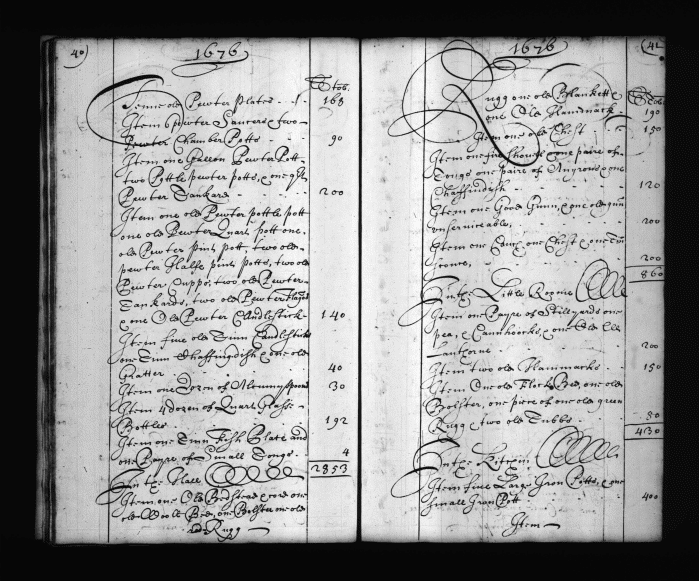 40
1676
Tob:
Tenne old Pewter Plates 168
Item 6 pewter Saucers & two
Pewter Chamber Potts 90
Item one Gallon Pewter Pott,
two Pottle pewter potts, & one qrt
Pewter Tankard 200
Item one old Pewter pottle pott
one old Pewter Quart pott one
old Pewter pint pott, two old
pewter Halfe pint potts, two old
Pewter Cupps, two old Pewter
Tankards, two old Pewter
& one Old Pewter Candlestick 140
Item five old Tinn Candlesticks
one Tinn Chaffingdish & one old
Gratter 40
Item one Dozen of Alcumy spoons 30
Item 4 dozen of Quart Glasse
Bottles 192
Item one Tinn Fish Plate and
one Payre of Small Tongs 4
2853
In the Hall
Item one Old Bedstead & Cord one
old Wooll Bed, one Bolster one old
Rugg
1676
41
Tob:
Rugg one old Blankett &
one Old Hammack 190
Item one old Chest 150
Item one fire shovel one paire of
Tongs one paire of Andirons & one
Chaffindish 120
Item one Good Gunn, & one old gun
unserviceable, 200
Item one Couch one Chest & one
200
860
In the Little Roome
Item one Payre of Stillyards one
pea, & Cannhoocks, & one Old
Lanthorne 200
Item two old Hammacks 150
Item One old Flock Bed, one old
Bolster, one piece of one old green
Rugg & two old Tubbs 80
430
In the Kitchin
Item five Large Iron Potts, & one
small Iron Pott 400
Item